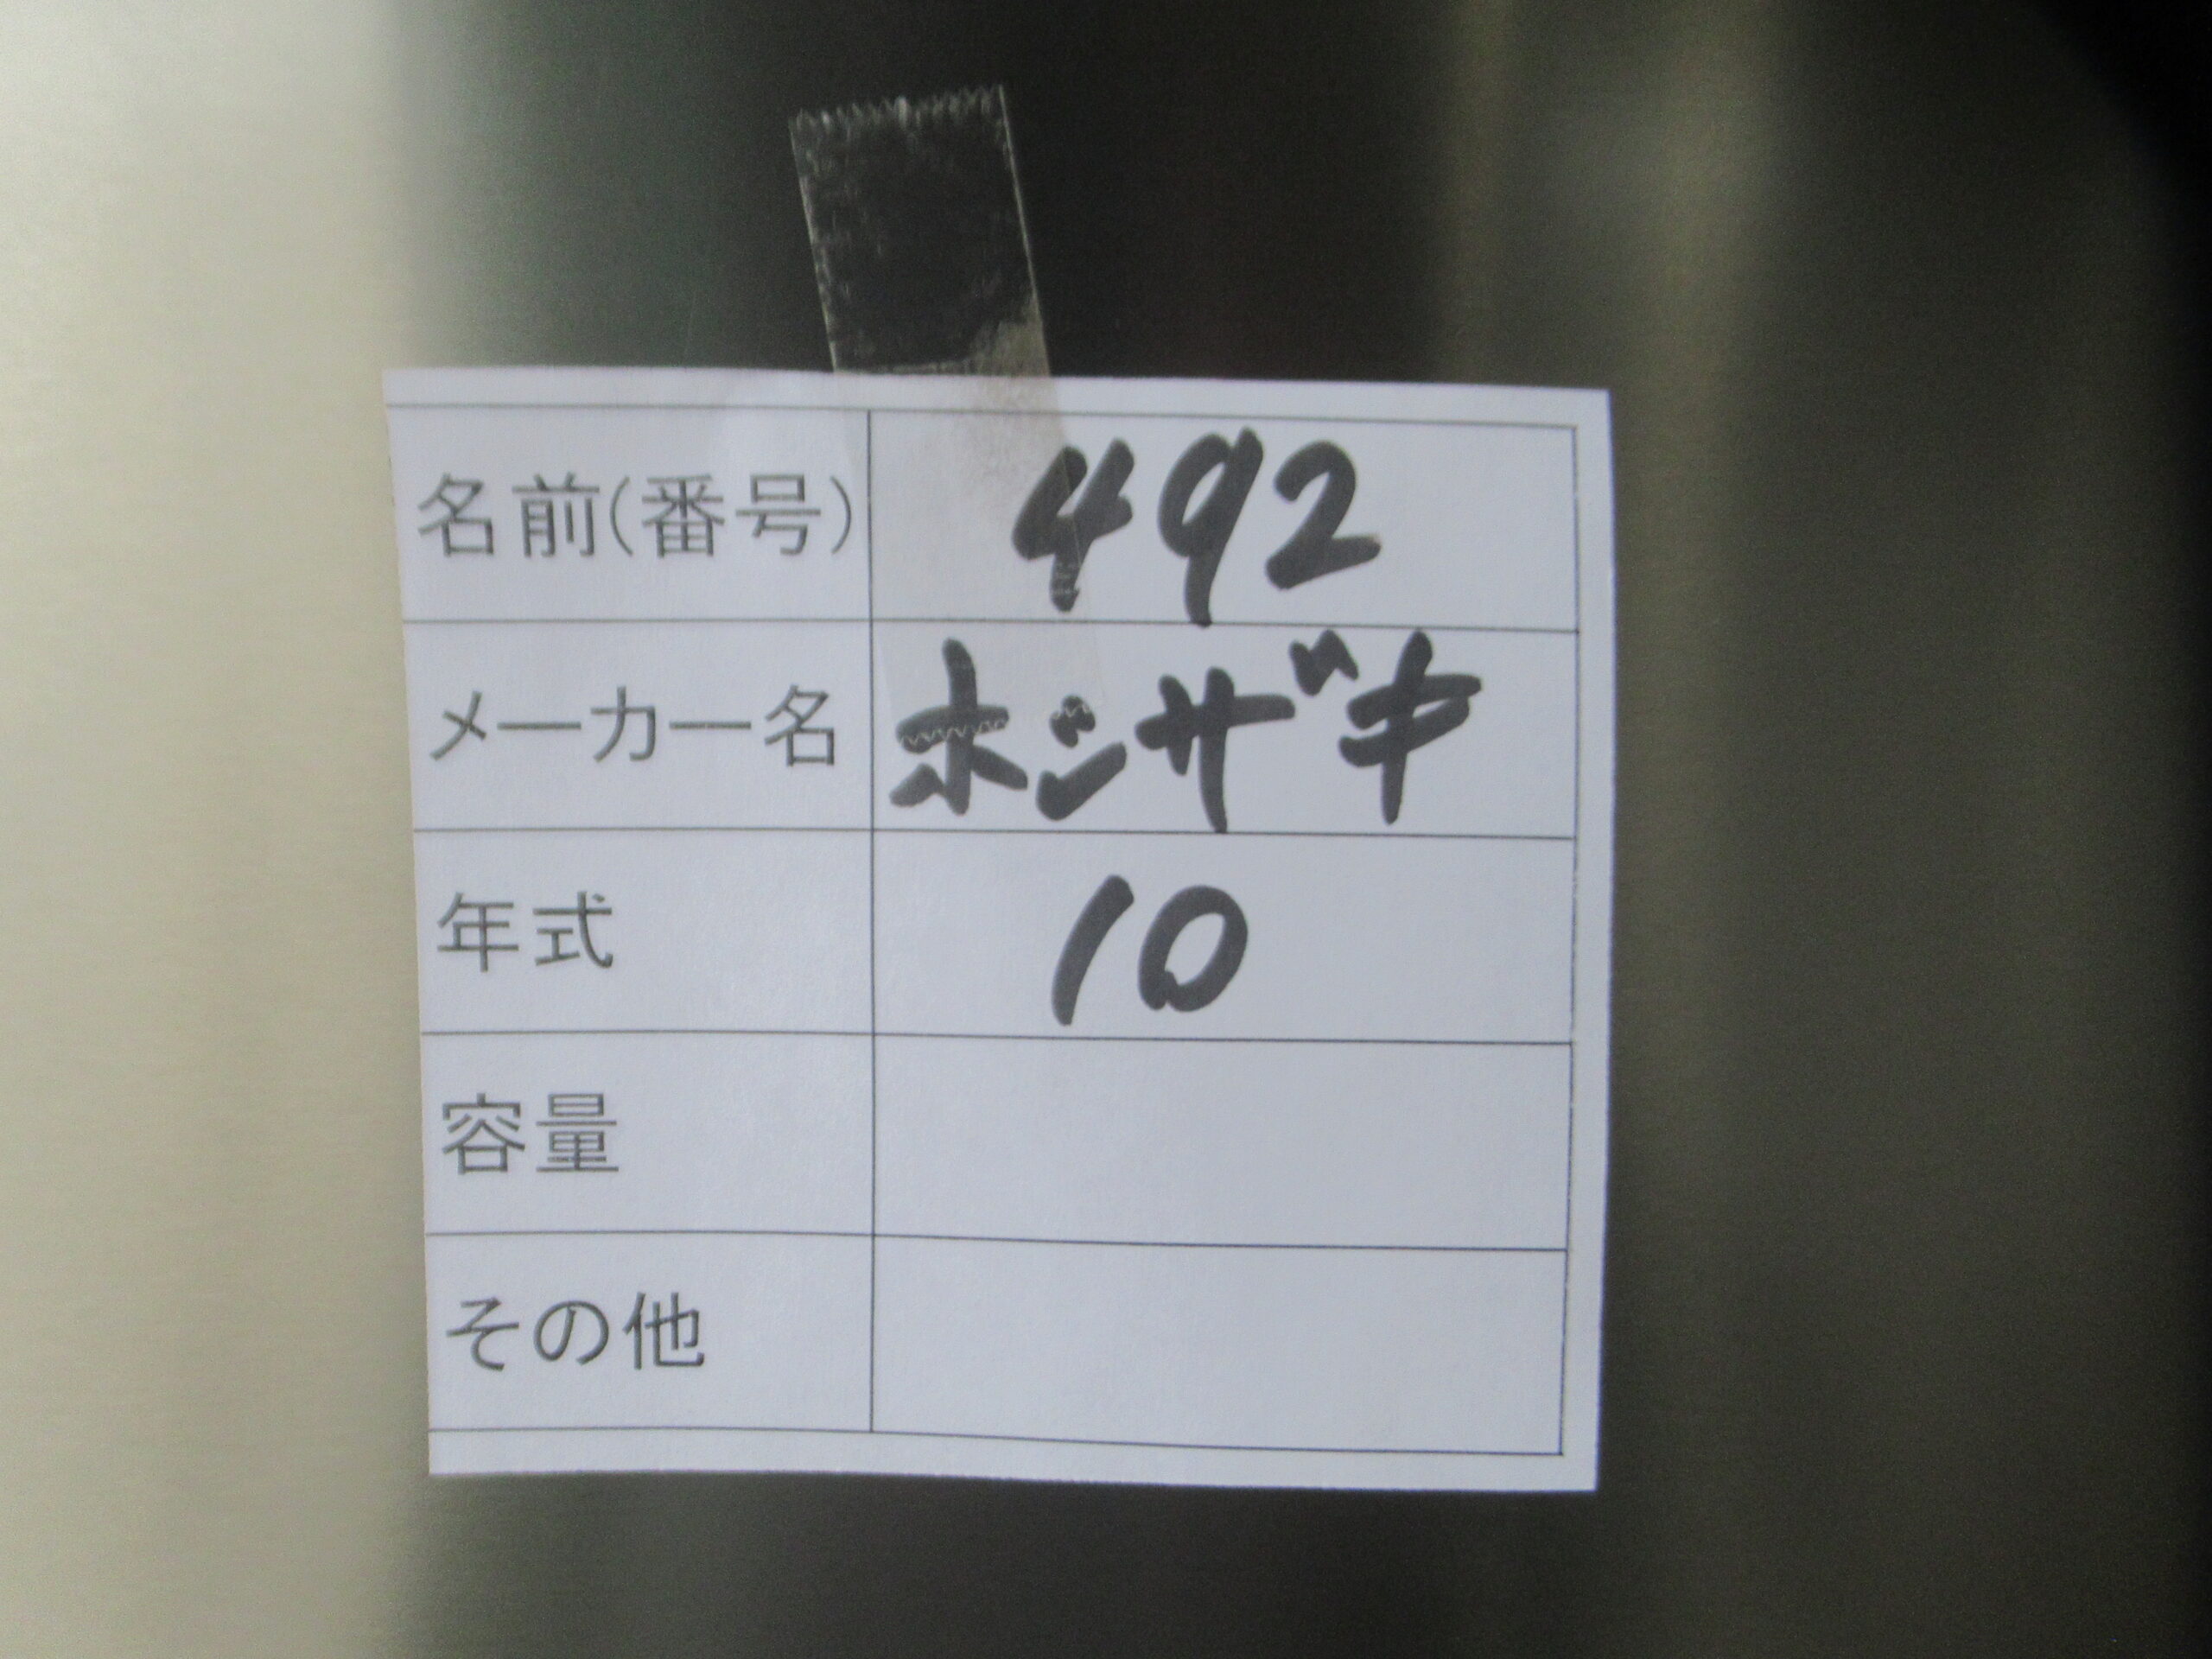 名前(番号) 492
メーカー名 ホシザキ
年式 10
容量
その他